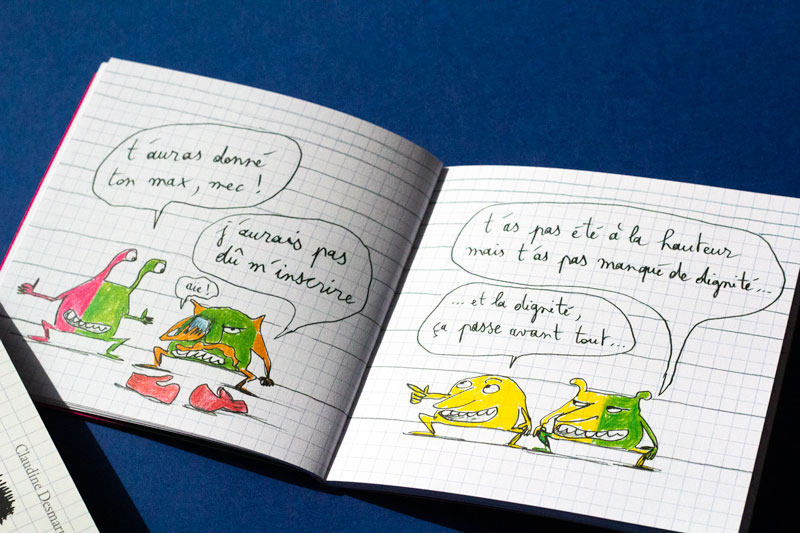 t'auras donné
ton max, mec !
j'aurais pas
dû m'inscrire
aïe !
t'as pas été à la hauteur
mais t'as pas manqué de dignité...
... et la dignité,
ça passe avant tout...
Claudine Desmar